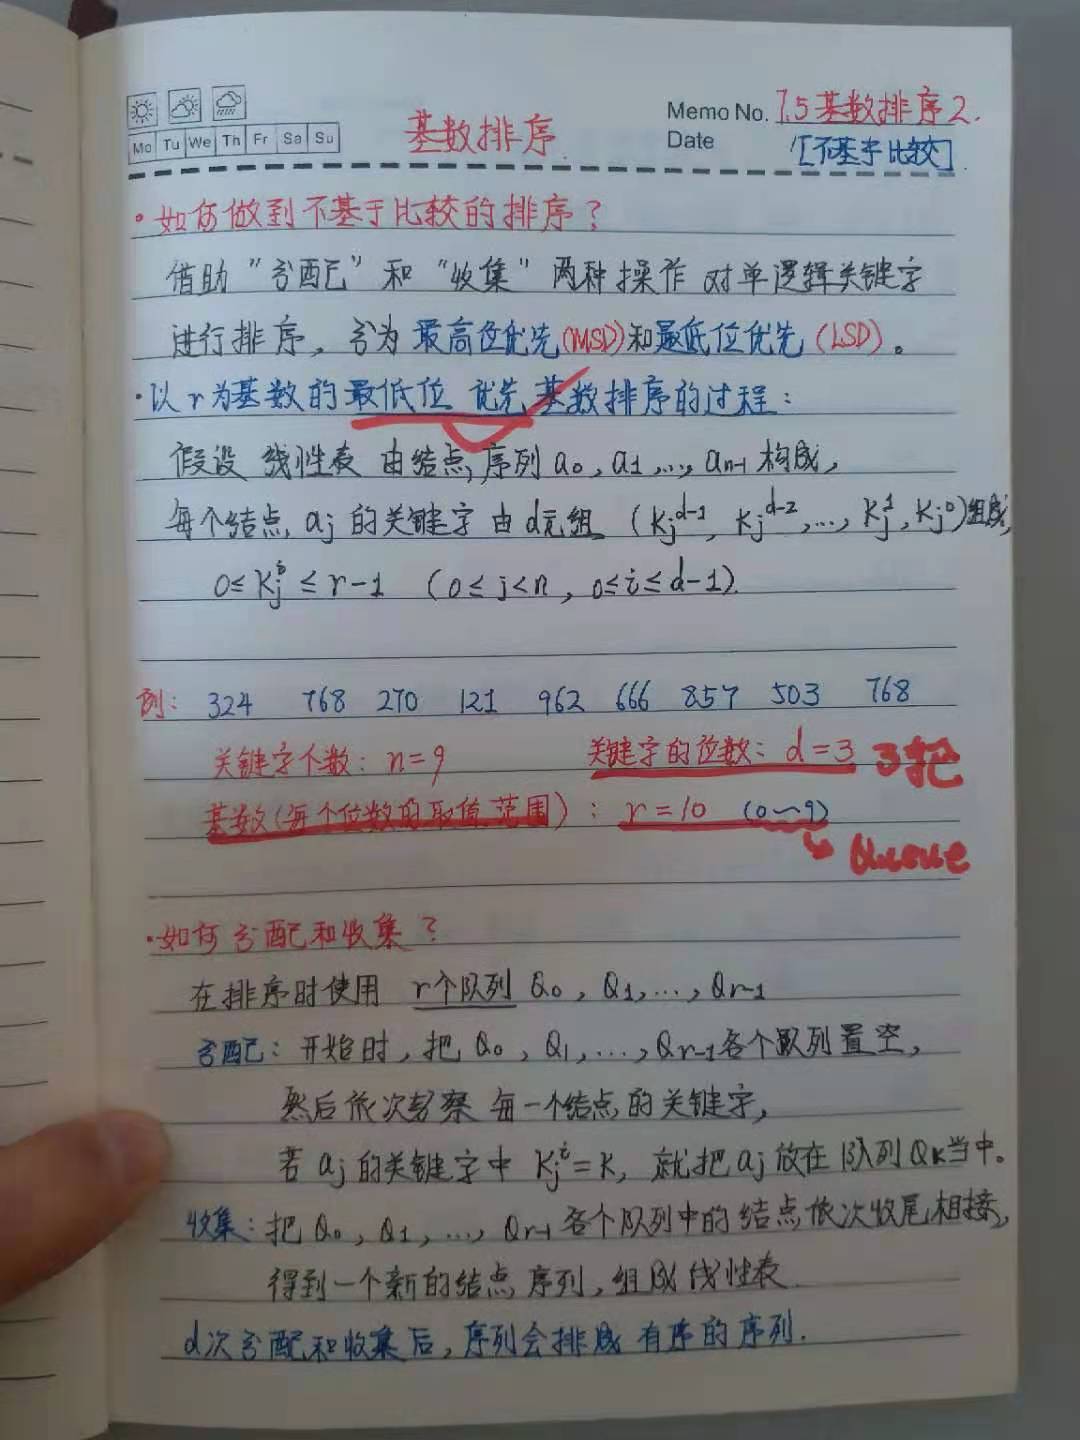 Memo No. 7.5基数排序2.
Mo Tu We Th Fr Sa Su
基数排序
Date [不基于比较].
·如何做到不基于比较的排序？
借助“分配”和“收集”两种操作对单逻辑关键字
进行排序，分为最高位优先(MSD)和最低位优先(LSD)。
·以r为基数的最低位优先基数排序的过程：
假设线性表由结点序列a₀，a₁，…，aₙ₋₁构成，
每个结点aⱼ的关键字由d元组（Kⱼᵈ⁻¹，Kⱼᵈ⁻²，…，Kⱼ¹，Kⱼ⁰)组成，
0≤Kⱼⁱ≤r-1 (0≤j<n，0≤i≤d-1).
例: 324 768 270 121 962 666 857 503 768
关键字个数：n=9 关键字的位数：d=3 3把
基数(每个位数的取值范围)：r=10 (0~9)
Queue
·如何分配和收集？
在排序时使用r个队列Q₀，Q₁，…，Qr-1
分配：开始时，把Q₀，Q₁，…，Qr-1各个队列置空，
然后依次考察每一个结点的关键字，
若aⱼ的关键字中Kⱼⁱ=K，就把aⱼ放在队列Qₖ当中。
收集：把Q₀，Q₁，…，Qr-1各个队列中的结点依次收尾相接，
得到一个新的结点序列，组成线性表.
d次分配和收集后，序列会排成有序的序列.